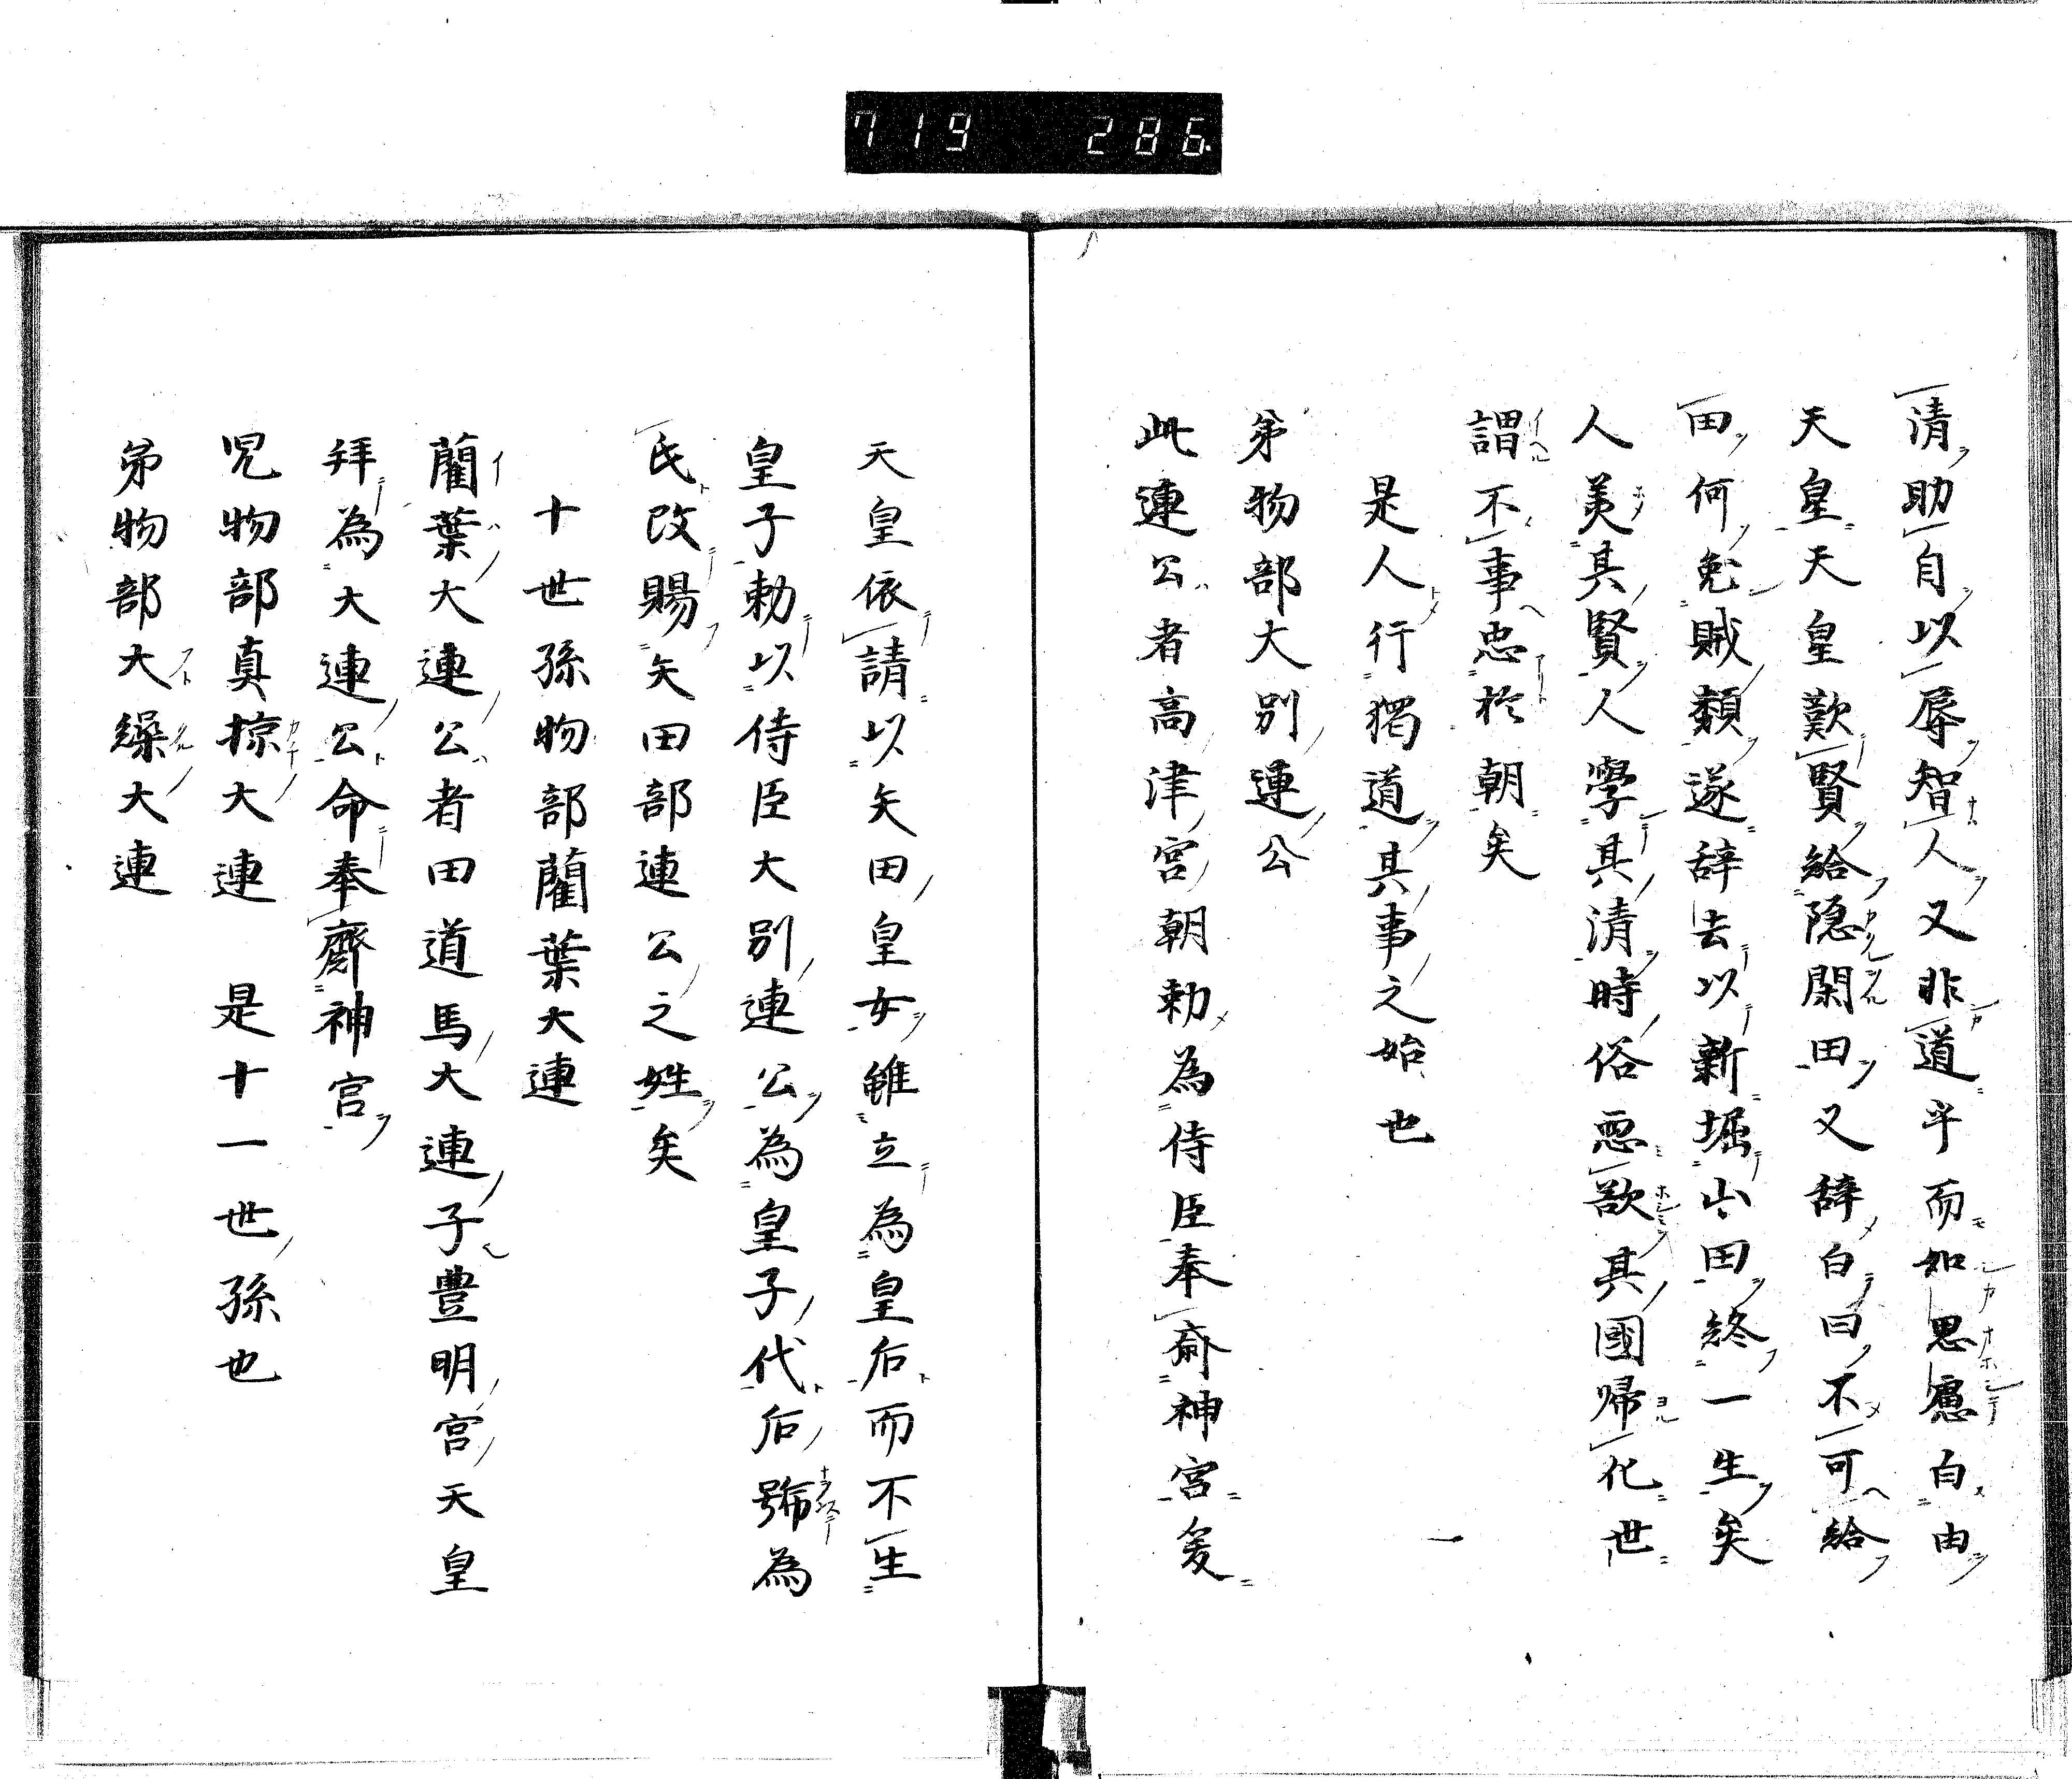 719 286
清助自以辱智人又非道乎而如思慮白由
天皇天皇歎賢給隠閑田又辞白曰不可給
田何免賊類遂辞去以新堀山田終一生矣
人美其賢人學其清時俗悪欲其國帰化世
謂不事忠於朝矣
是人行獨道其事之始也
弟物部大別連公
此連公者高津宮朝勅為侍臣奉齋神宮爰
天皇依請以矢田皇女雖立為皇后而不生
皇子勅以侍臣大別連公為皇子代后號為
氏改賜矢田部連公之姓矣
十世孫物部藺葉大連
藺葉大連公者田道馬大連子豊明宮天皇
拜為大連公命奉齋神宮
兄物部真掠大連　是十一世孫也
弟物部大繰大連